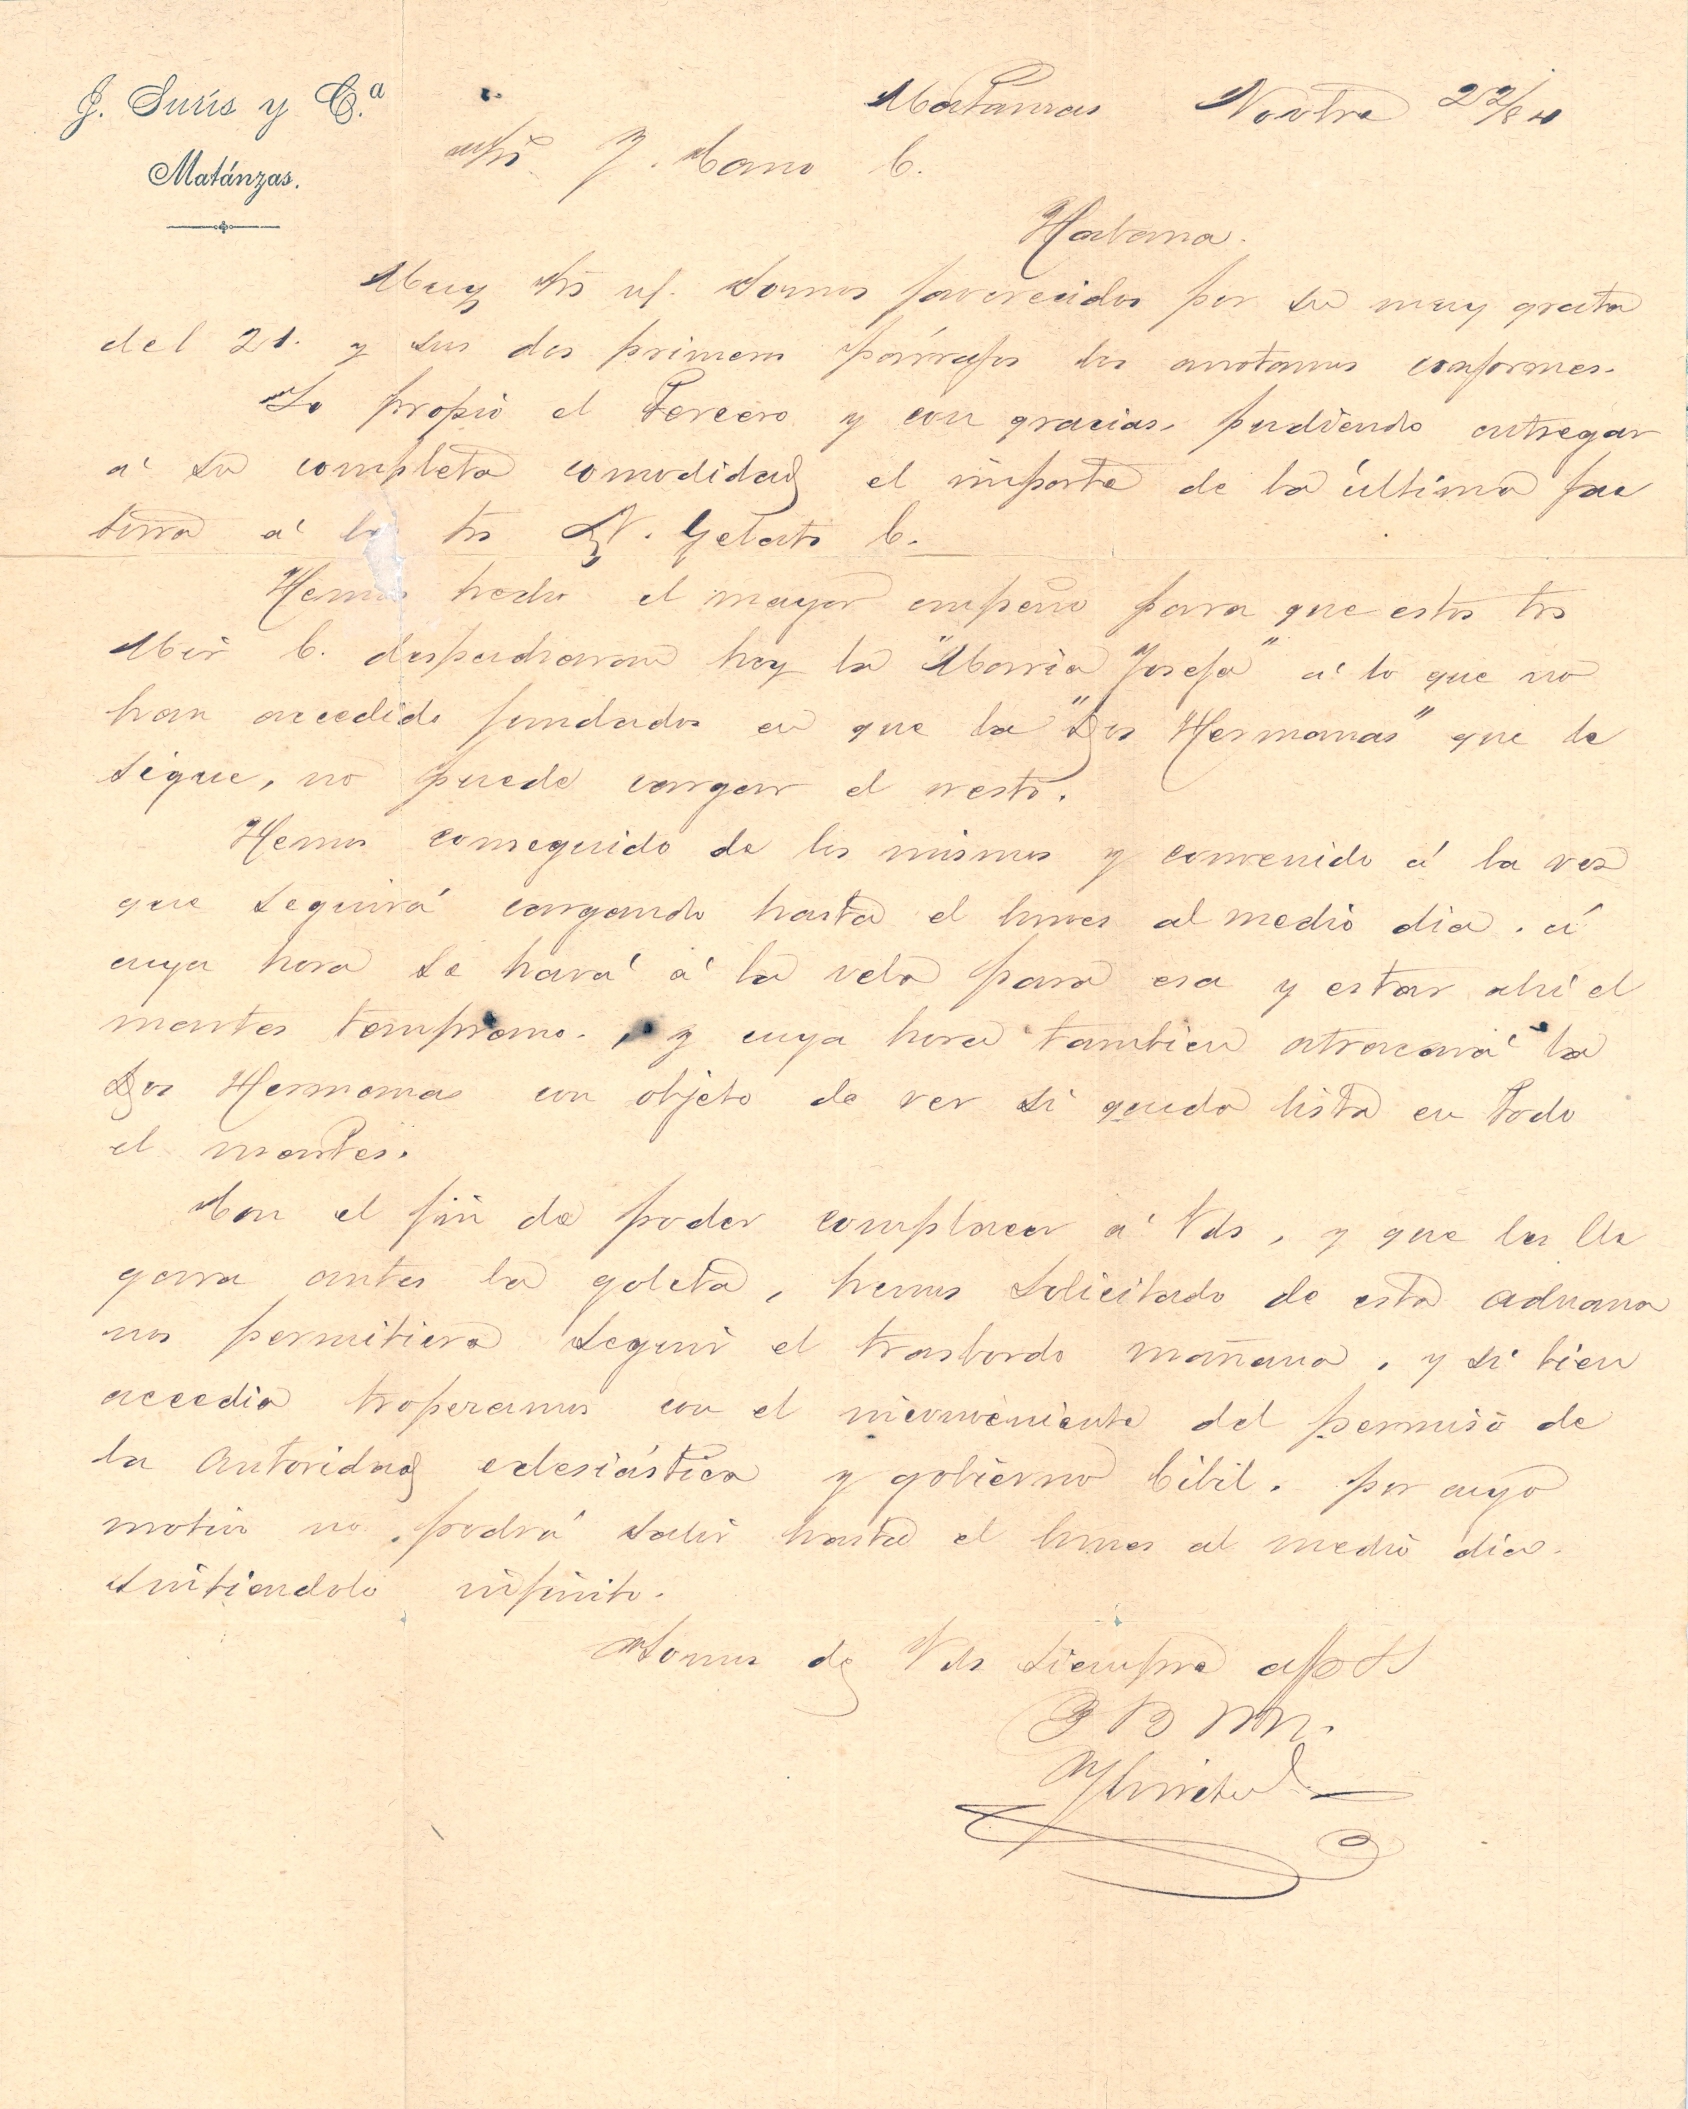 J. Surís y Cª.
Matánzas.
Matanzas Novbre 22/84
Srs J. Cano C.
Habana.
Muy Srs ns. Somos favorecidos por su muy grata
del 21. y sus dos primeros párrafos los anotamos conformes.
Lo propio el tercero y con gracias, pudiendo entregar
á su completa comodidad el importe de la última fac
tura á los Srs N. Gelats C.
Hemos hecho el mayor empeño para que estos Srs
Mir C. despacharan hoy la "Maria Josefa" á lo que no
han accedido fundados en que la "Dos Hermanas" que le
sigue, no puede cargar el resto.
Hemos conseguido de los mismos y convenido á la vez
que seguirá cargando hasta el lunes al medio dia. á
cuya hora se hará á la vela para esa y estar ahí el
martes temprano. y cuya hora tambien atracará la
Dos Hermanas con objeto de ver si queda lista en todo
el martes.
Con el fin de poder complacer á Vds, y que les lle
gara antes la goleta, hemos solicitado de esta aduana
nos permitiera seguir el trasbordo mañana, y si bien
accedia tropezamos con el inconveniente del permiso de
la autoridad eclesiástica y gobierno Cibil. por cuyo
motivo no podrá salir hasta el lunes al medio dia.
sintiendolo infinito.
Somos de Vds siempre affos SS
Q B S M.